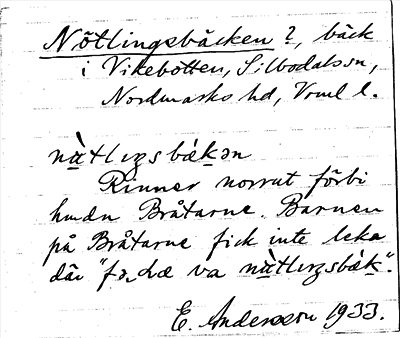 Nötlingsbäcken ?, bäck
i Vikebotten, Silbodals sn,
Nordmarks hd, Vrml l.
nä̀tlıŋsbäkən
Rinner norrut förbi
hmdn Bråtarne. Barnen
på Bråtarne fick inte leka
där "för va nä̀tlıŋsbäk".
E. Andersson 1933.